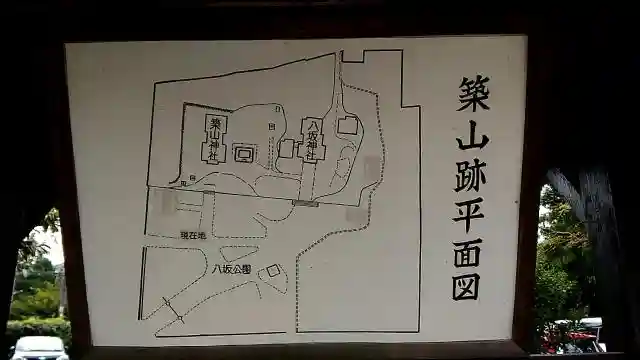 築山跡平面図
八坂神社
築山神社
現在地
八坂公園